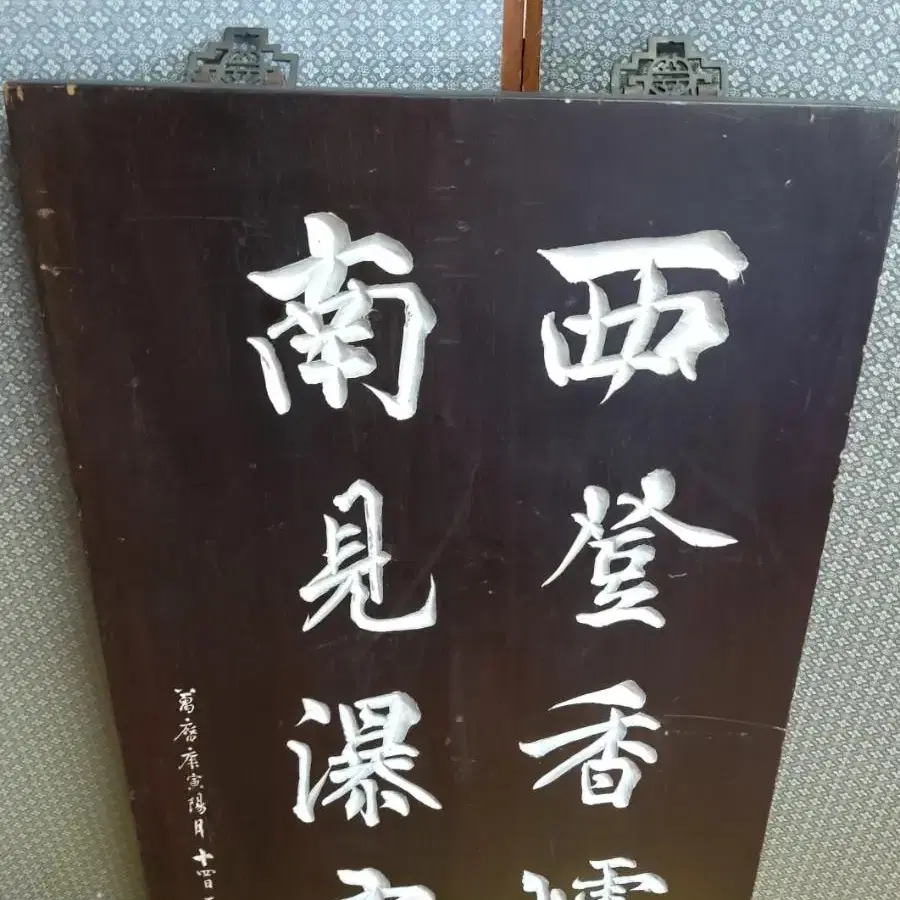 西登香
南見瀑
萬曆庚寅陽月十四日